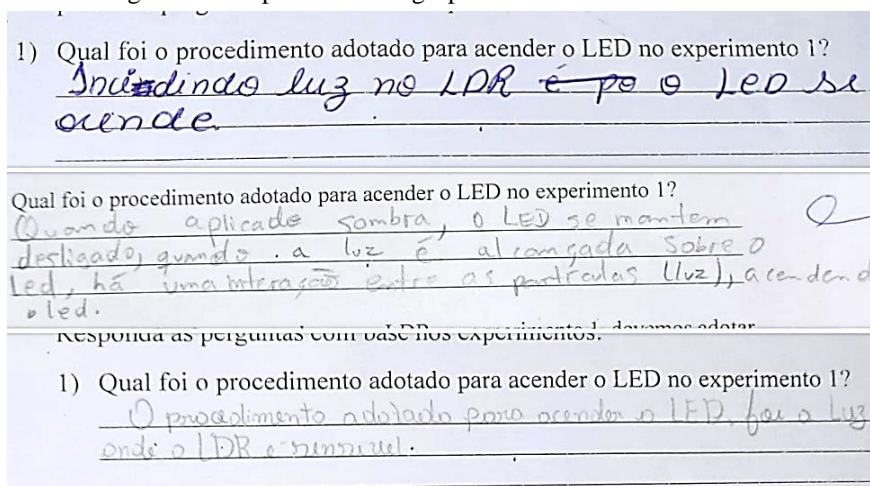 1) Qual foi o procedimento adotado para acender o LED no experimento 1?
Incidindo luz no LDR é po o LED se
acende.
Qual foi o procedimento adotado para acender o LED no experimento 1?
Quando aplicado sombra, o LED se mantem
desligado, quando a luz é alcançada sobre o
Led, há uma interação entre as partículas (luz), acendend
o led.
Responda as perguntas com base nos experimentos.
1) Qual foi o procedimento adotado para acender o LED no experimento 1?
O procedimento adotado para acender o LED, foi a luz
onde o LDR é sensivel.